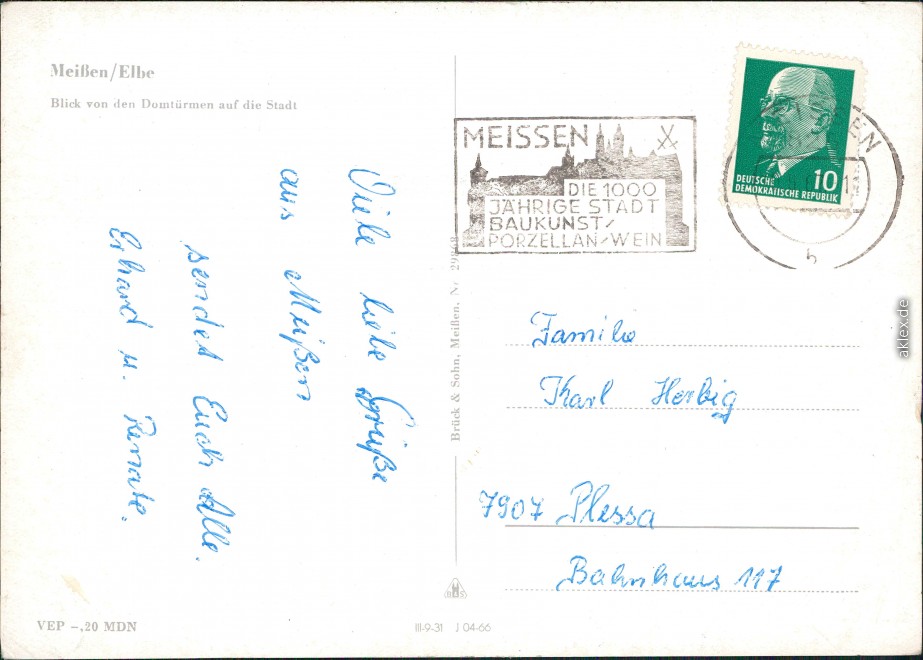 Meißen/Elbe
Blick von den Domtürmen auf die Stadt
Viele liebe Grüße
aus Meißen
sendet Euch Alle.
Erhard u. Renate.
VEP -,20 MDN
Brück & Sohn, Meißen, Nr.
III-9-31 J 04-66
MEISSEN
DIE 1000
JÄHRIGE STADT
BAUKUNST/
PORZELLAN/WEIN
DEUTSCHE
DEMOKRATISCHE REPUBLIK
10
EN
b
Familie
Karl Herbig
7907 Plessa
Bahnhaus 117
aklex.de